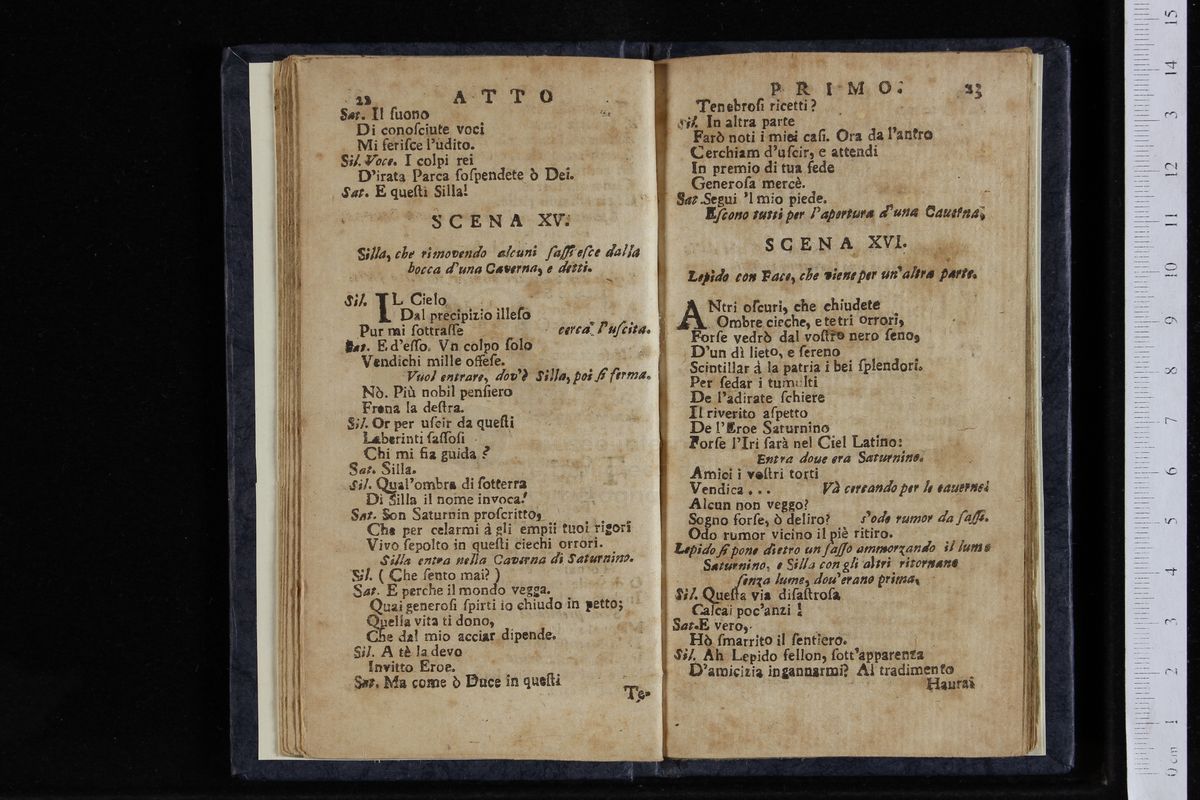 22 ATTO
Sat. Il ſuono
Di conoſciute voci
Mi feriſce l'udito.
Sil. Voce. I colpi rei
D'irata Parca ſoſpendete ò Dei.
Sat. E queſti Silla!
SCENA XV.
Silla, che rimovendo alcuni ſaſſi eſce dalla
bocca d'una Caverna, e detti.
Sil. IL Cielo
Dal precipizio illeſo
Pur mi ſottraſſe cerca l'uſcita.
Sat. E d'eſſo. Vn colpo ſolo
Vendichi mille offeſe.
Vuol entrare, dov'è Silla, poi ſi ferma.
Nò. Più nobil penſiero
Frena la deſtra.
Sil. Or per uſcir da queſti
Laberinti ſaſſoſi
Chi mi fia guida?
Sat. Silla.
Sil. Qual'ombra di ſotterra
Di Silla il nome invoca!
Sat. Son Saturnin proſcritto,
Che per celarmi à gli empii tuoi rigori
Vivo ſepolto in queſti ciechi orrori.
Silla entra nella Caverna di Saturnino.
Sil. (Che ſento mai?)
Sat. E perche il mondo vegga.
Quai generoſi ſpirti io chiudo in petto;
Quella vita ti dono,
Che dal mio acciar dipende.
Sil. A tè la devo
Invitto Eroe.
Sat. Ma come ò Duce in queſti
Te-
PRIMO. 23
Tenebroſi ricetti?
Sil. In altra parte
Farò noti i miei caſi. Ora da l'antro
Cerchiam d'uſcir, e attendi
In premio di tua fede
Generoſa mercè.
Sat. Segui 'l mio piede.
Eſcono tutti per l'apertura d'una Caverna,
SCENA XVI.
Lepido con Face, che viene per un'altra parte.
ANtri oſcuri, che chiudete
Ombre cieche, e tetri orrori,
Forſe vedrò dal voſtro nero ſeno,
D'un dì lieto, e ſereno
Scintillar à la patria i bei ſplendori.
Per ſedar i tumulti
De l'adirate ſchiere
Il riverito aſpetto
De l'Eroe Saturnino
Forſe l'Iri ſarà nel Ciel Latino:
Entra doue era Saturnino.
Amici i voſtri torti
Vendica . . . Và cercando per le cauerne.
Alcun non veggo?
Sogno forſe, ò deliro? s'ode rumor da ſaſſi.
Odo rumor vicino il piè ritiro.
Lepido ſi pone dietro un ſaſſo ammorzando il lume
Saturnino, e Silla con gli altri ritornano
ſenza lume, dou'erano prima,
Sil. Queſta via diſaſtroſa
Calcai poc'anzi!
Sat. E vero,
Hò ſmarrito il ſentiero.
Sil. Ah Lepido fellon, ſott'apparenza
D'amicizia ingannarmi? Al tradimento
Haurai
0 cm 1 2 3 4 5 6 7 8 9 10 11 12 3 14 15